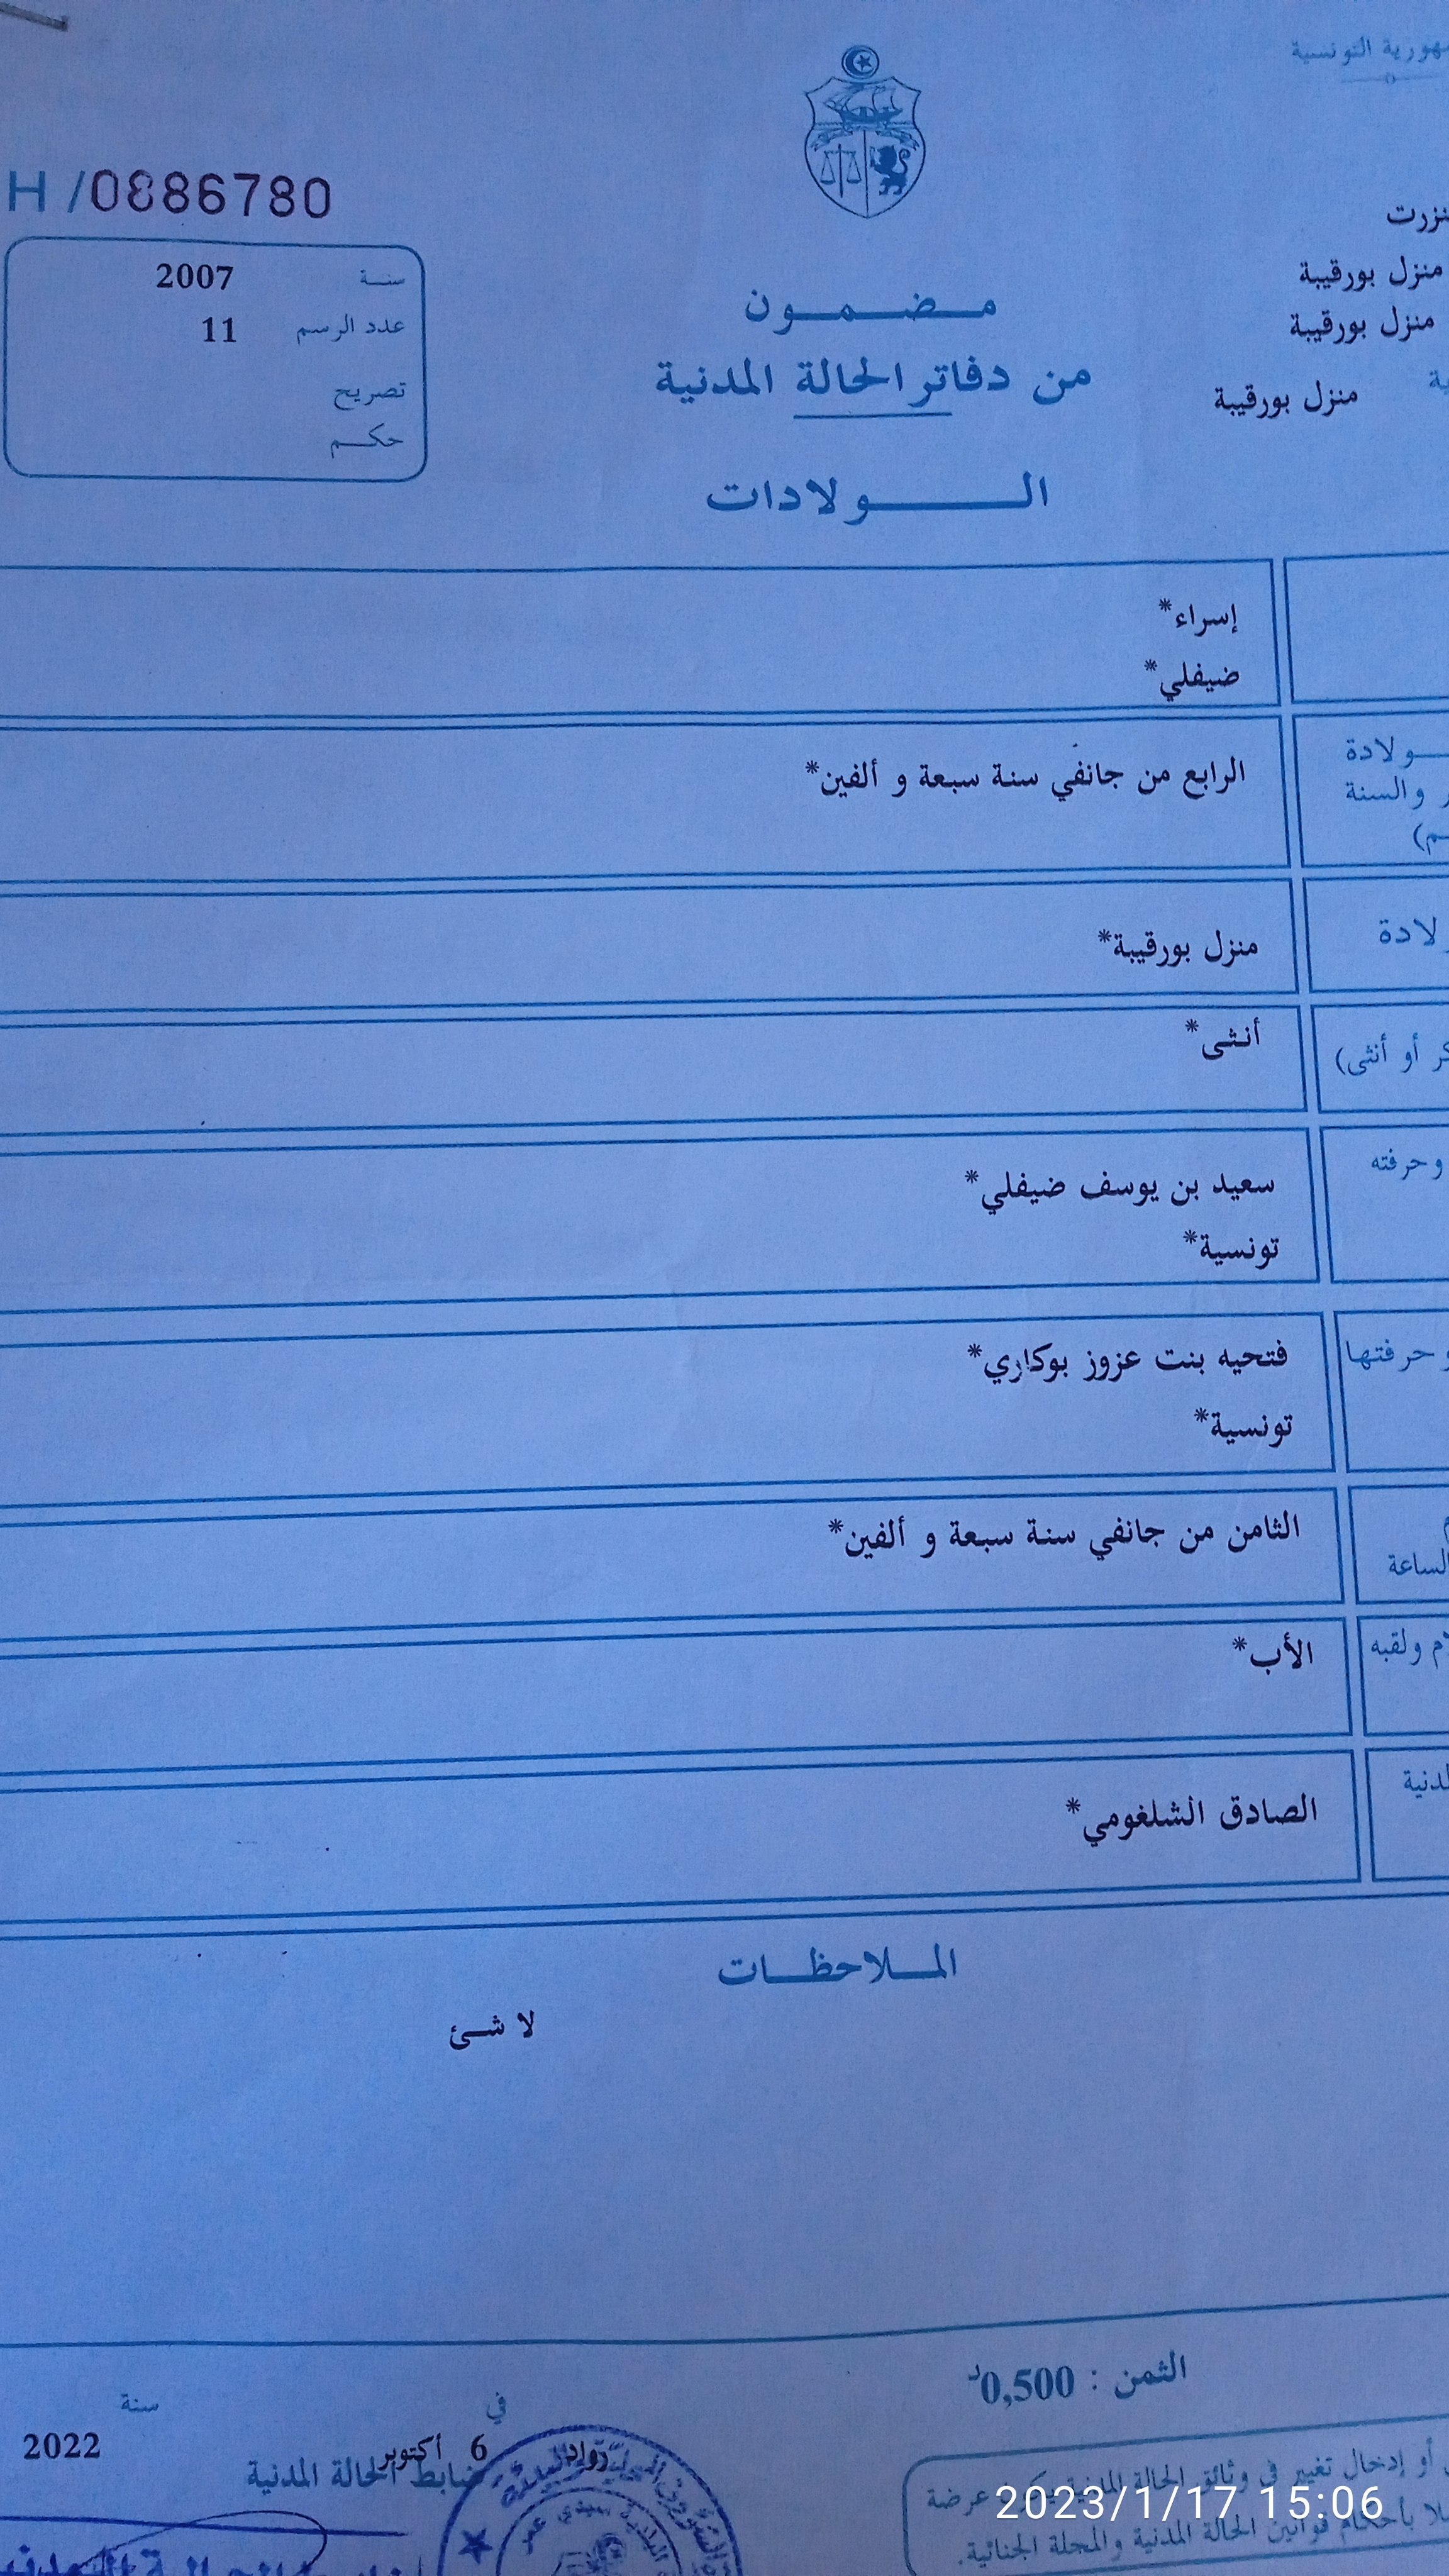 الجمهورية التونسية
H/0886780
سنة 2007
عدد الرسم 11
تصريح
حكم
مضمون
من دفاتر الحالة المدنية
الولادات
بنزرت
منزل بورقيبة
منزل بورقيبة
منزل بورقيبة
إسراء*
ضيفلي*
ولادة
والسنة
الرابع من جانفي سنة سبعة و ألفين*
منزل بورقيبة*
أو أنثى)
أنثى*
وحرفته
سعيد بن يوسف ضيفلي*
تونسية*
وحرفتها
فتحيه بنت عزوز بوكاري*
تونسية*
الساعة
الثامن من جانفي سنة سبعة و ألفين*
ولقبه
الأب*
الصادق الشلغومي*
الملاحظات
لا شئ
الثمن : 0,500د
رواد في 6 أكتوبر سنة 2022
ضابط الحالة المدنية
أو إدخال تغيير في وثائق الحالة المدنية يكون عرضة
بأحكام قوانين الحالة المدنية والمجلة الجنائية.
2023/1/17 15:06